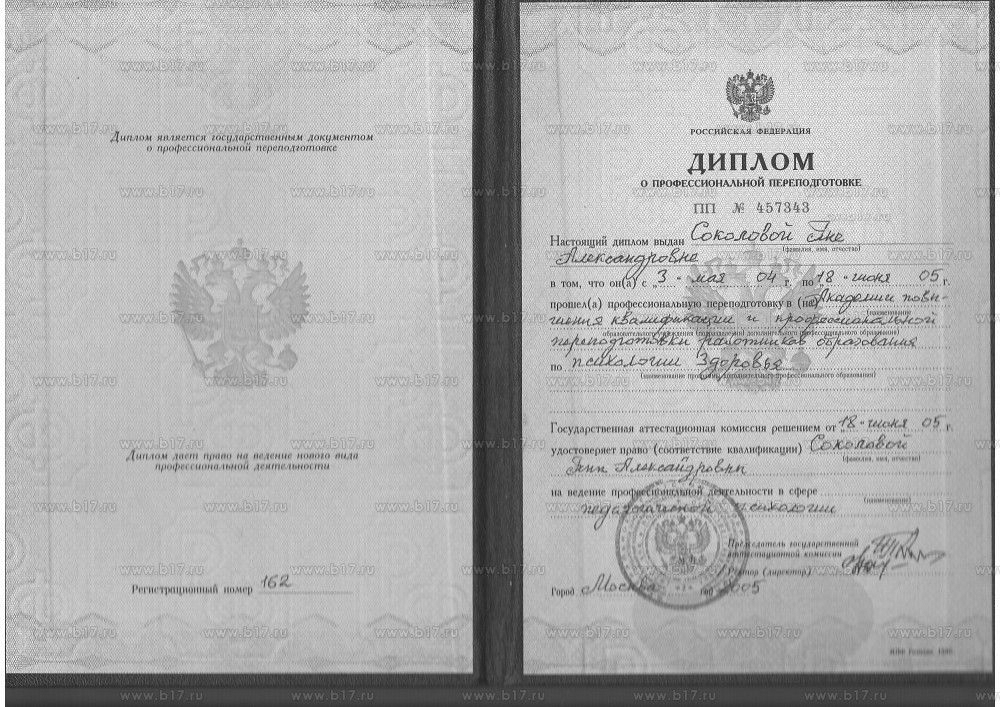 Диплом является государственным документом
о профессиональной переподготовке
Диплом дает право на ведение нового вида
профессиональной деятельности
Регистрационный номер 162
РОССИЙСКАЯ ФЕДЕРАЦИЯ
ДИПЛОМ
О ПРОФЕССИОНАЛЬНОЙ ПЕРЕПОДГОТОВКЕ
ПП № 457343
Настоящий диплом выдан Соколовой Яне
(фамилия, имя, отчество)
Александровне
в том, что он(а) с „3" мая 04 г. по „18" июня 05 г.
прошел(а) профессиональную переподготовку в (на) Академии повы-
(наименование
шения квалификации и профессиональной
образовательного учреждения (подразделения) дополнительного профессионального образования)
переподготовки работников образования
по психологии здоровья
(наименование программы дополнительного профессионального образования)
Государственная аттестационная комиссия решением от „18" июня 05 г.
удостоверяет право (соответствие квалификации) Соколовой
(фамилия, имя, отчество)
Яны Александровны
на ведение профессиональной деятельности в сфере
(наименование)
педагогической психологии
Председатель государственной
аттестационной комиссии
Ректор (директор)
Город Москва год 2005
www.b17.ru